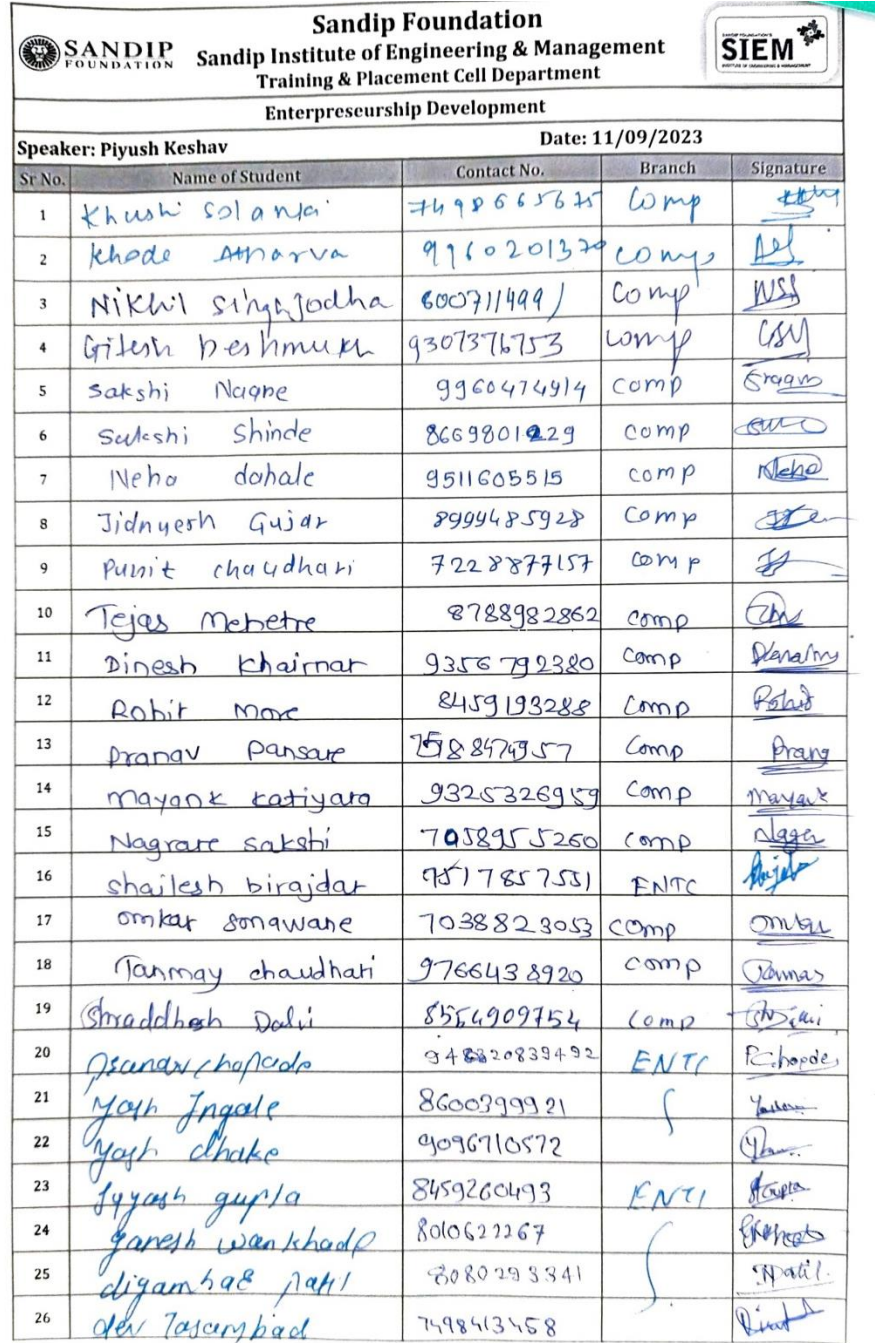 Sandip Foundation
SANDIP FOUNDATION
Sandip Institute of Engineering & Management
SIEM
Training & Placement Cell Department
Enterpreseurship Development
Speaker: Piyush Keshav Date: 11/09/2023
Sr No. Name of Student Contact No. Branch Signature
1 Khushi Solanki 7498665675 Comp
2 Khode Atharva 9960201370 comp
3 Nikhil Singh Jodha 6007114991 Comp NSS
4 Gitesh Deshmukh 9307376753 comp
5 Sakshi Nagne 9960474914 comp
6 Sakshi Shinde 8669801229 comp
7 Neha dahale 9511605515 comp Neha
8 Jidnyesh Gujar 8999485928 comp
9 Punit chaudhari 7228877157 comp
10 Tejas Mehetre 8788982862 comp
11 Dinesh Khairnar 9356792380 comp
12 Rohit More 8459193288 comp Rohit
13 Pranav Pansare 7588474957 comp
14 Mayank Katiyara 9325326959 comp Mayank
15 Nagrare Sakshi 7058955260 comp
16 Shailesh birajdar 9517857551 ENTC
17 Omkar Sonawane 7038823053 comp
18 Tanmay chaudhari 9766438920 comp
19 Shraddhesh Dalvi 8554909754 comp
20 948820839492 ENTC P.Chopde
21 Yash Ingale 8600399921
22 Yash dhake 9096710572
23 gupta 8459260493 ENTC
24 ganesh wankhade 8010622267
25 patil 8080293341
26 dev 7498413458